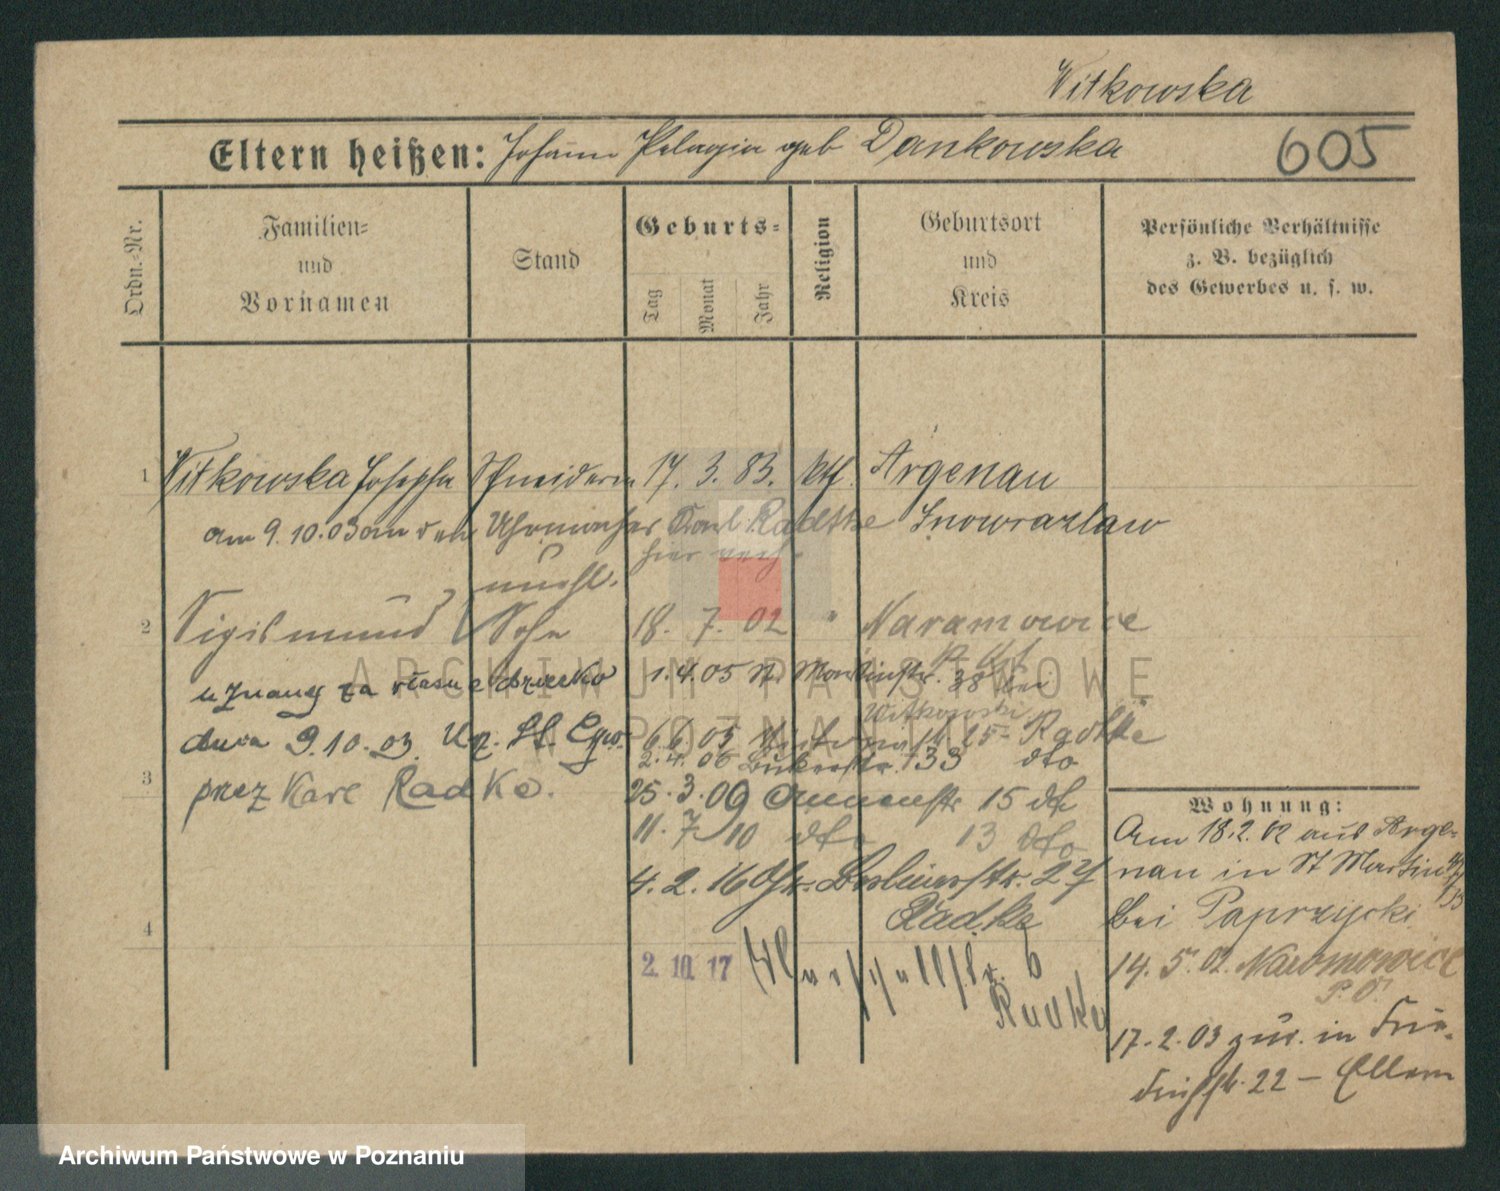 Witkowska
Eltern heißen: Johann Pelagia geb Dankowska
605
Ordn.-Nr.
Familien-
und
Vornamen
Stand
Geburts-
Tag
Monat
Jahr
Religion
Geburtsort
und
Kreis
Persönliche Verhältnisse
z. B. bezüglich
des Gewerbes u. s. w.
1 Witkowska Josepha Schneiderin 17. 3. 83. kth. Argenau
am 9.10.03 an den Uhrmacher Karl Radtke Inowrazlaw
hier verh.
unehl.
2 Sigismund Sohn 18. 7. 02 " Naramowice
P. Ost
uznany za własne dziecko 1.4.05 St Martinstr. 38 bei
Witkowski
dnia 9.10.03 Urz. St. Cyw. 6.6 05 15 Radtke
2.4.06 133 dto
3 przez Karl Radke. 25.3.09 15 dto
11. 7. 10 dto 13 dto
4. 2. 16 Gr. Berlinerstr. 27
Radke
4
2. 10. 17 6
Radke
Wohnung:
Am 18.2.02 aus Arge-
nau in St Martin
bei Paprzycki
14. 5. 02. Naramowice
P. O.
17.2.03 zur. in
22 - Eltern
ARCHIWUM PAŃSTWOWE
W POZNANIU
Archiwum Państwowe w Poznaniu